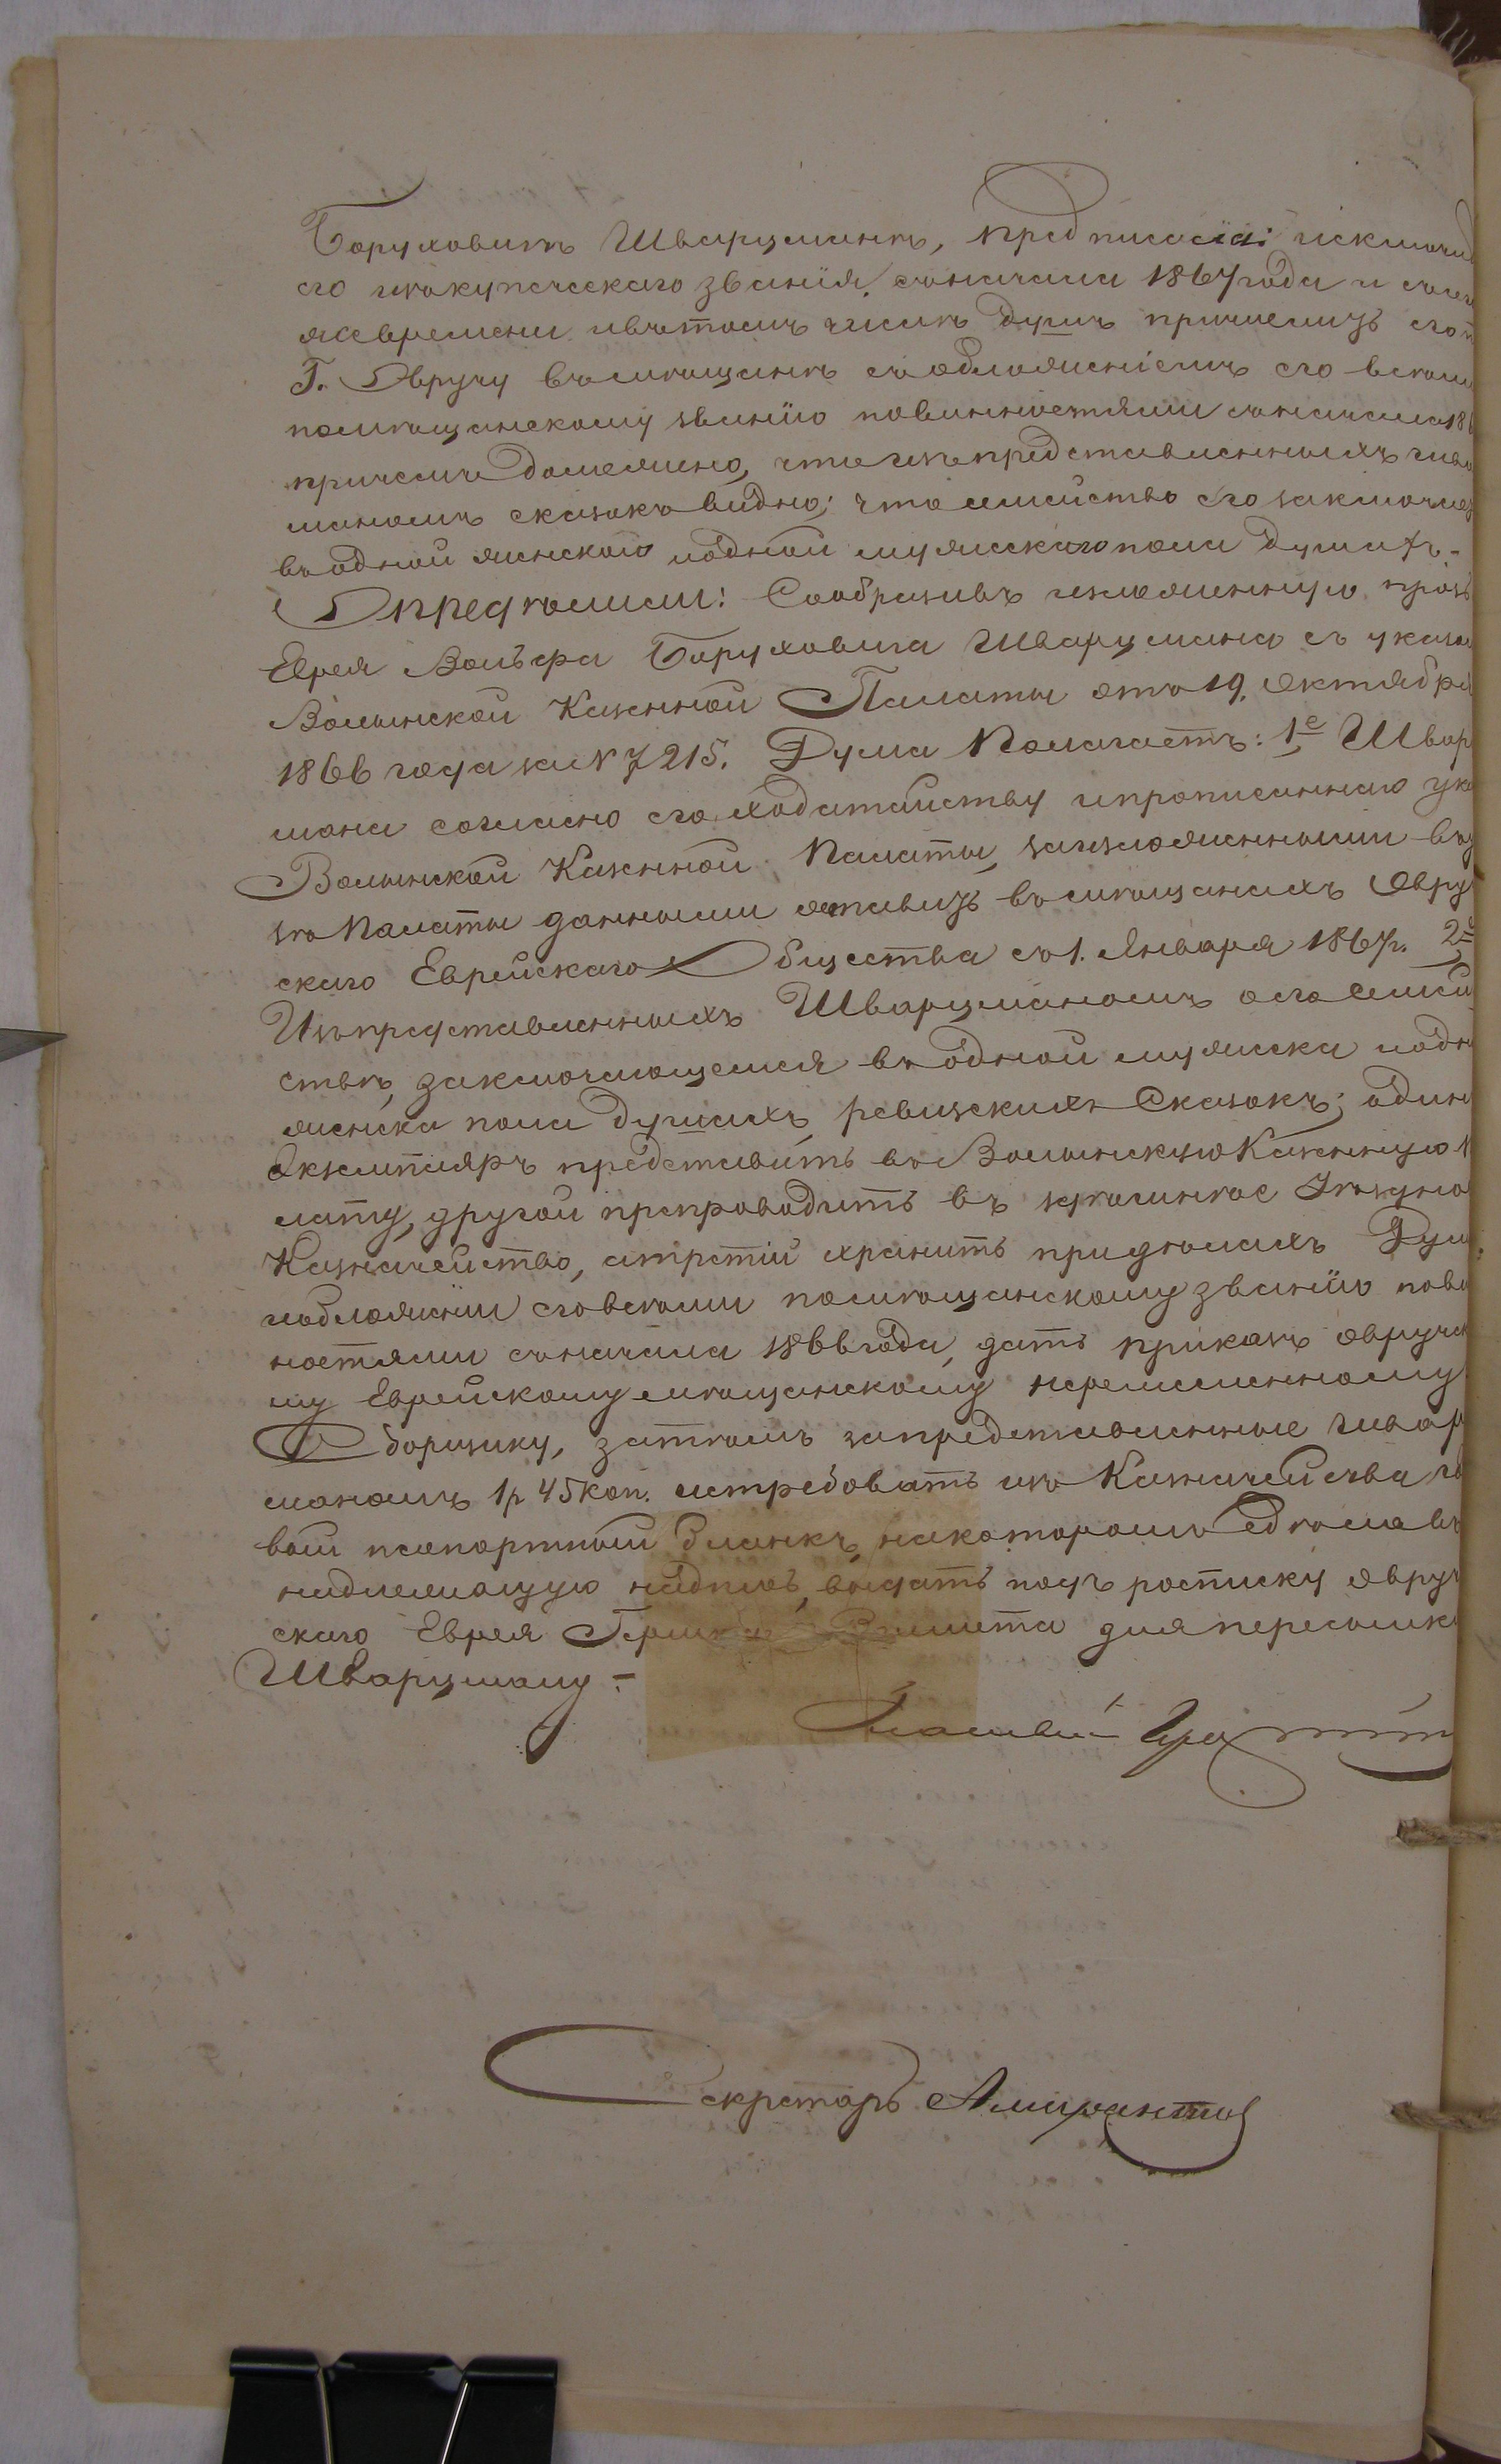 Боруховичъ Шварцманъ, предписала: исключить
его изъ купеческаго званія съ начала 1867 года и съ того
же времени ивътомъ числѣ душъ причислить его п
Г. Овручу въ мѣщане съ обложеніемъ его всѣми
помѣщанскому званію повинностями съ начала 186
причемъ доложено, что изъ представленныхъ Швар
маномъ сказокъ видно; что семейство его заключает
въ одной женскаго и одной мужескаго пола душахъ.-
Опредѣлили: Сообразивъ изложенную прозь
Еврея Вольфа Боруховича Шварцмана съ указом
Волынской Казенной Палаты отъ 19. Октября
1866 года за N 7215. Дума Полагаетъ: 1е Швар
мана согласно его ходатайству и прописаннаго ука
Волынской Казенной Палаты, за изложенными въ у
зѣ Палаты данными оставить въ мѣщанахъ Овру
скаго Еврейскаго Общества съ 1. Января 1867 г. 2е
Изъ представленныхъ Шварцманомъ о его семей
ствѣ, заключающемся въ одной мужеска и одно
женска пола душахъ, ревизскихъ Сказокъ; одинъ
Экземпляръ представить въ Волынскую Казенную П
лату, другой препроводить въ здѣшнее Уѣздное
Казначейство, а третій хранить при дѣлахъ Думы
и обложеніи его всѣми помѣщанскому званію пови
ностями съ начала 1866 года, дать приказъ овручск
му Еврейскому мѣщанскому перемѣнному
Сборщику, затѣмъ за представленные Шварц
маномъ 1 р 45 коп. истребовать изъ Казначейства
вой паспортный бланкъ, на которомъ сдѣлавъ
надлежащую надпись, выдать подъ росписку овруч
скаго Еврея для пересылки
Шварцману -
Секретарь